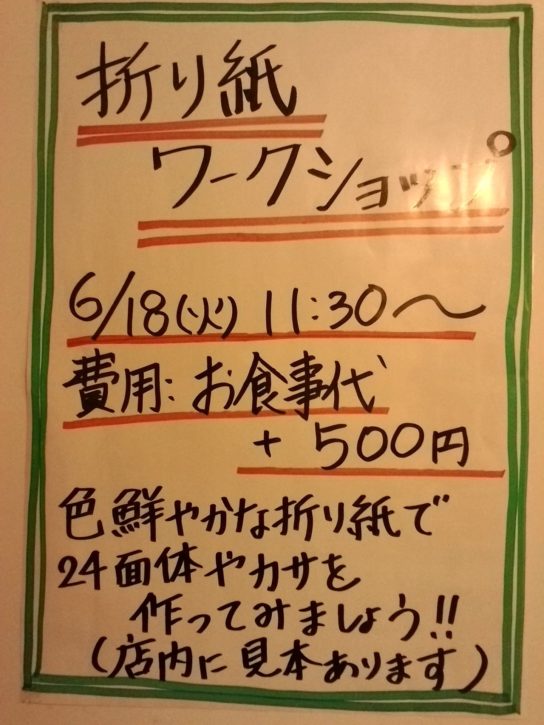 折り紙
ワークショップ
6/18(火) 11:30〜
費用: お食事代
+ 500円
色鮮やかな折り紙で
24面体やカサを
作ってみましょう!!
(店内に見本あります)